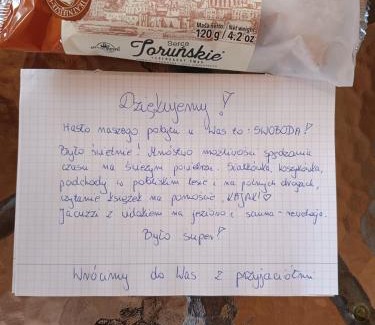 Masa netto/Net weight:
120 g / 4.2 oz
Serce
Toruńskie
Dziękujemy!
Hasło naszego pobytu u Was to: SWOBODA!
Było świetnie! Mnóstwo możliwości spędzania
czasu na świeżym powietrzu. Siatkówka, koszykówka,
podchody w pobliskim lesie i na polnych drogach,
czytanie książek na pomoście, KAJAKI♡
Jacuzzi z widokiem na jezioro i sauna - rewelacja.
Było super!
Wrócimy do Was z przyjaciółmi